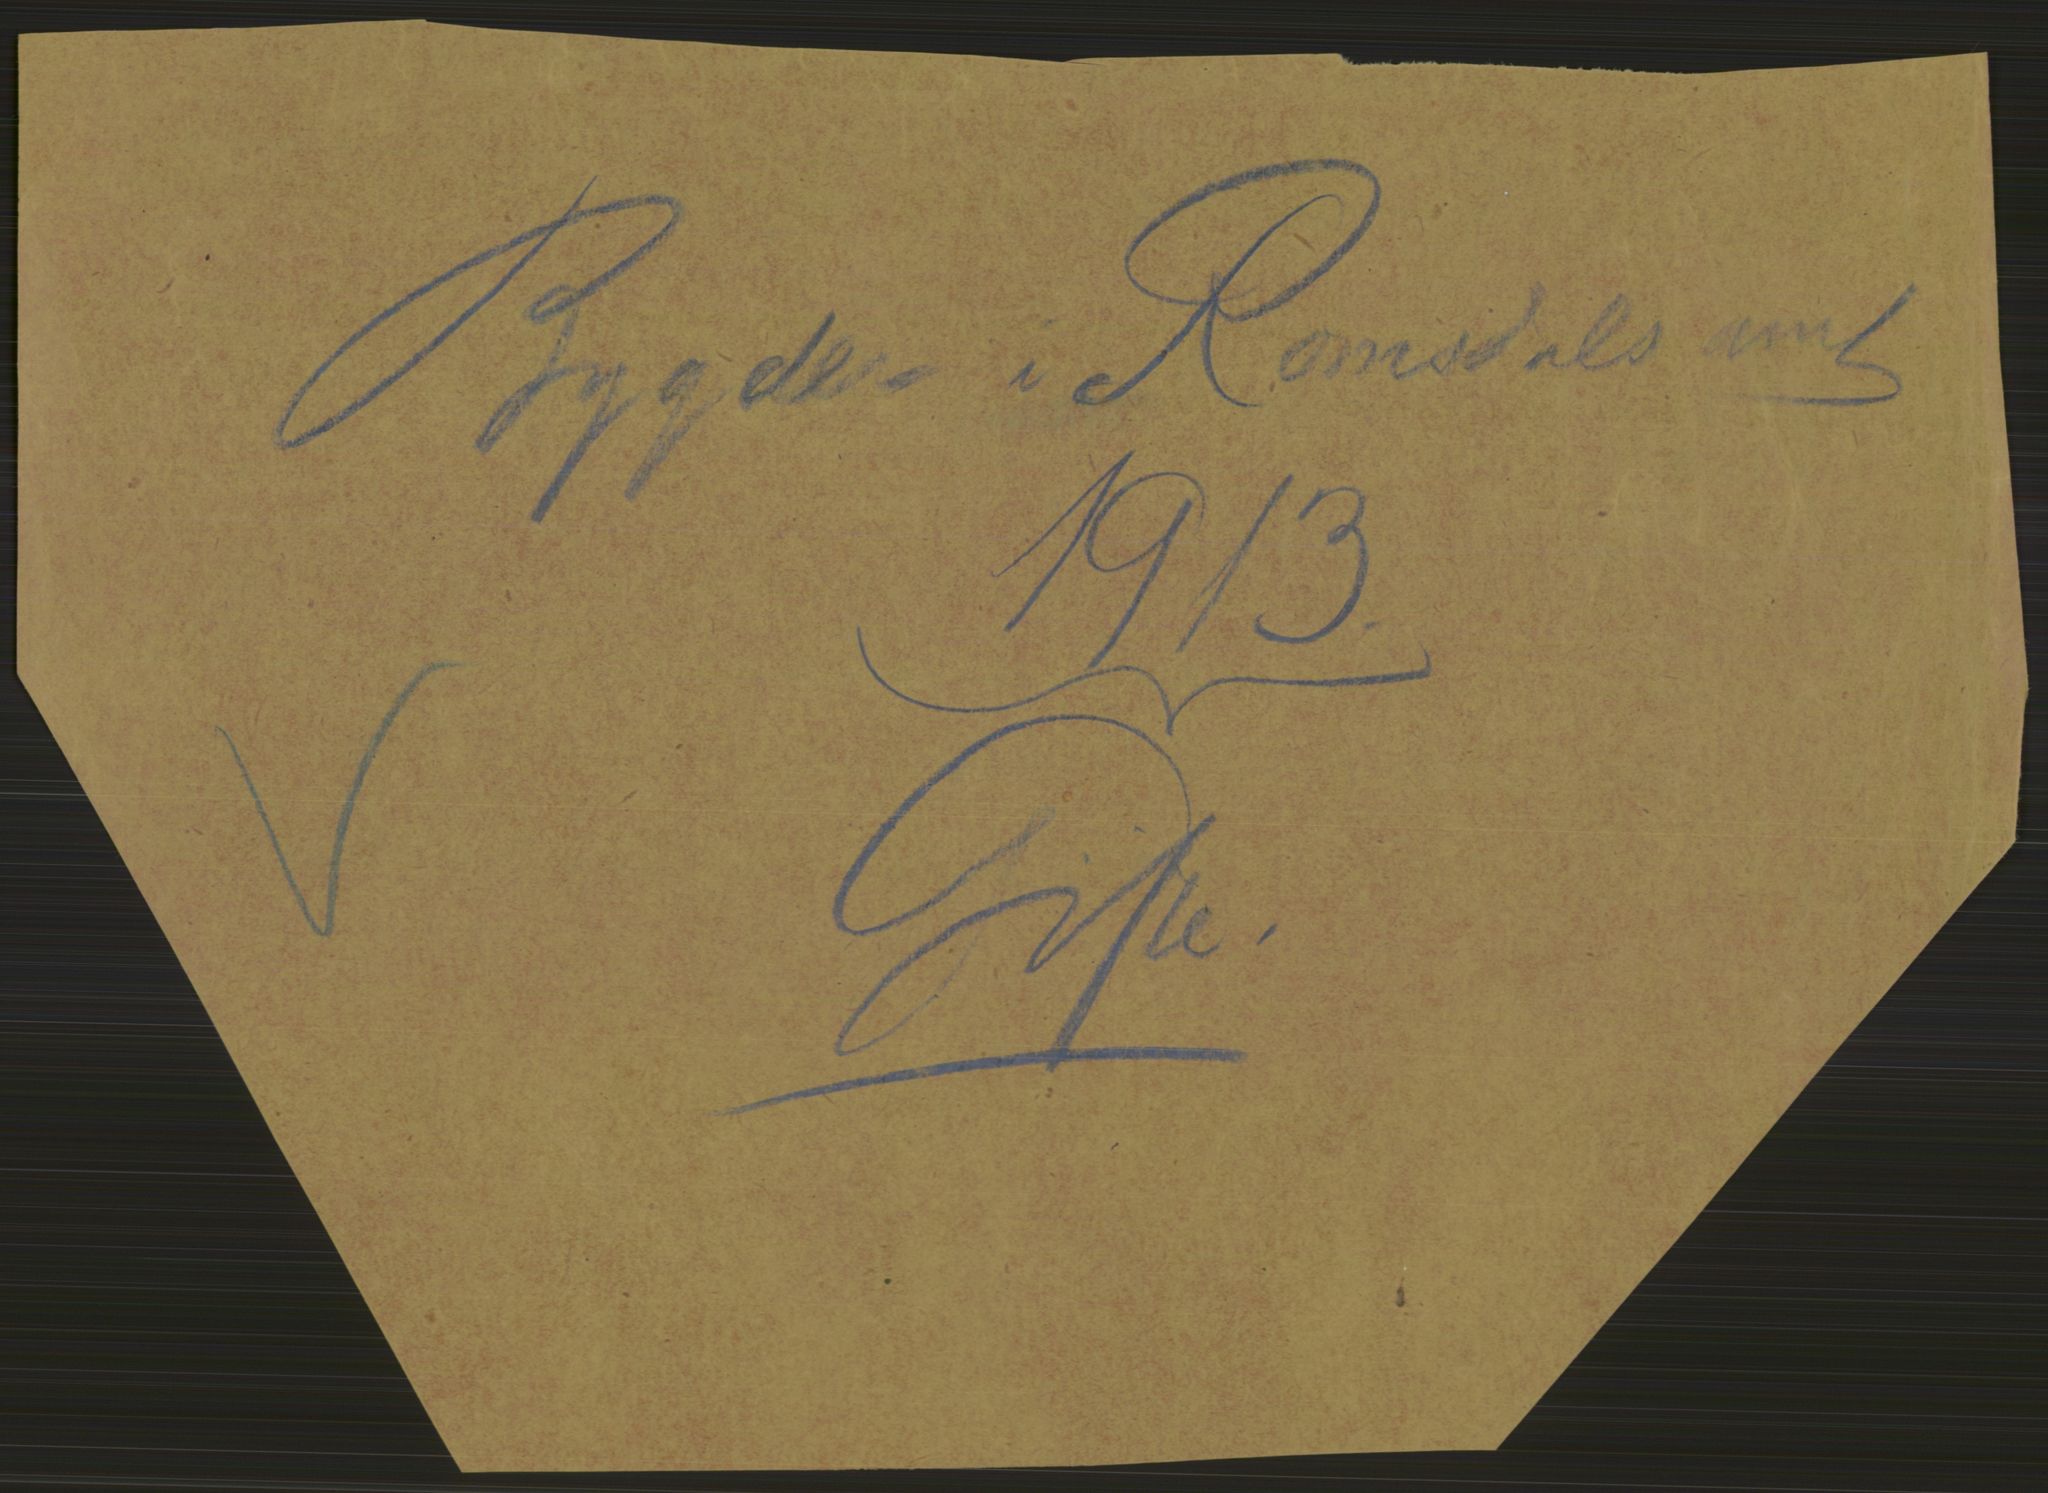 Bygder i Romsdals amt
1913.
Gifte.